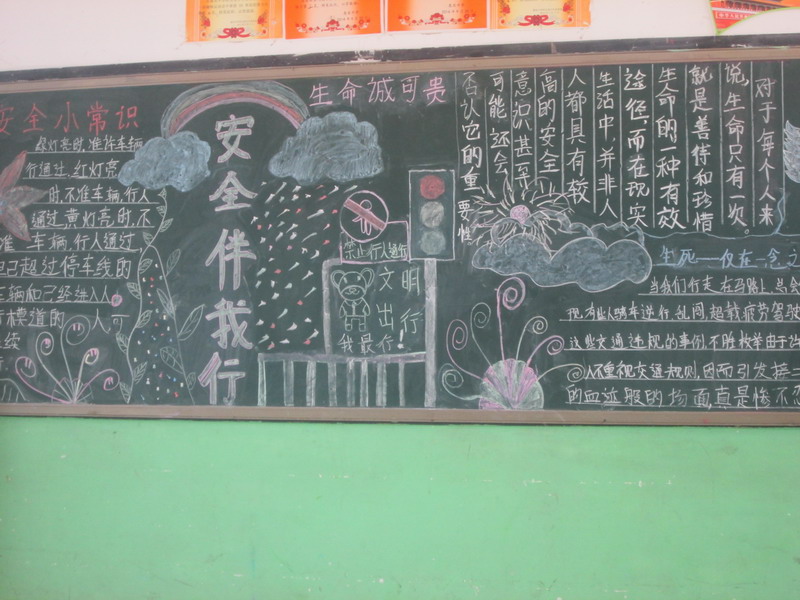 安全小常识
绿灯亮时,准许车辆
行通过,红灯亮
时,不准车辆,行人
通过,黄灯亮时,不
准 车辆,行人通过
已超过停车线的
车辆和已经进入人
行横道的 人 可
续
安全伴我行
禁止行人通行
文明
出行
我最行!
生命诚可贵
对于每个人来
说,生命只有一次。
就是善待和珍惜
生命的一种有效
途径,而在现实
生活中,并非人
人都具有较
高的安全
意识,甚至
可能还会
否认它的重要性
生死一 仅在一念之
当我们行走在马路上,总会
现,有些人骑车逆行,乱闯,超载疲劳驾驶
这些交通违规的事例,不胜枚举由于
人不重视交通规则,因而引发接二
的血迹般的 真是惨不忍